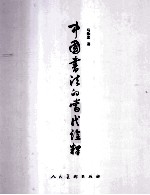 中国书法的当代诠释
人民美术出版社